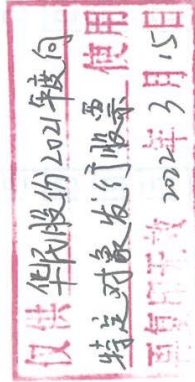 仅供华民股份2021年度向
特定对象发行股票使用
再复印无效2022年3月15日